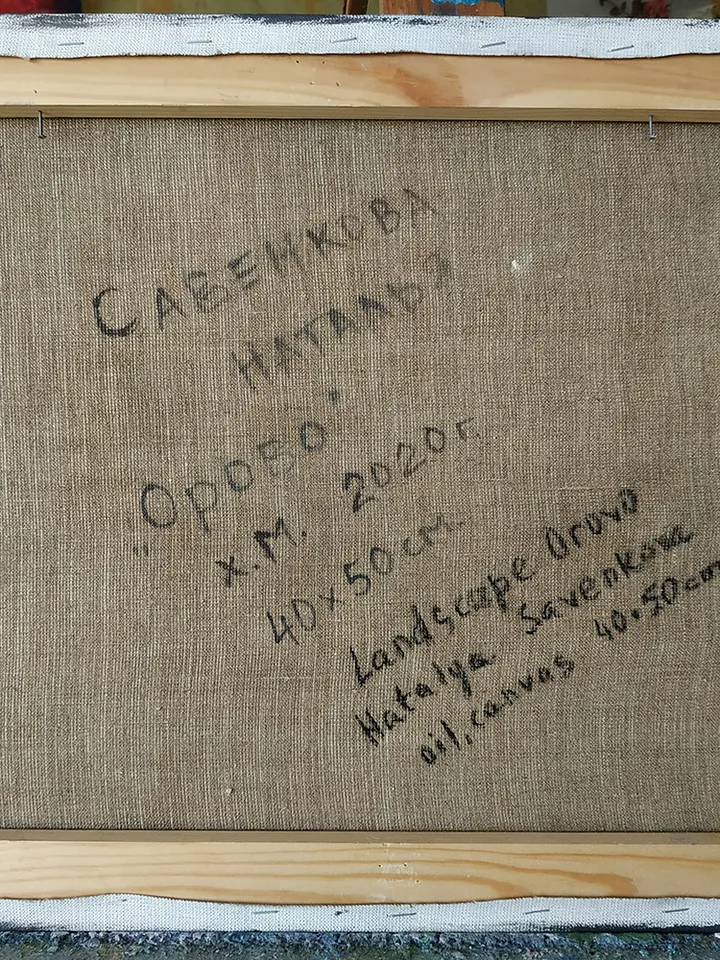 САВЕНКОВА
НАТАЛЬЯ
„Орово"
х.м. 2020г.
40х50см.
Landscape Orovo
Natalya Savenkova
oil, canvas 40×50cm